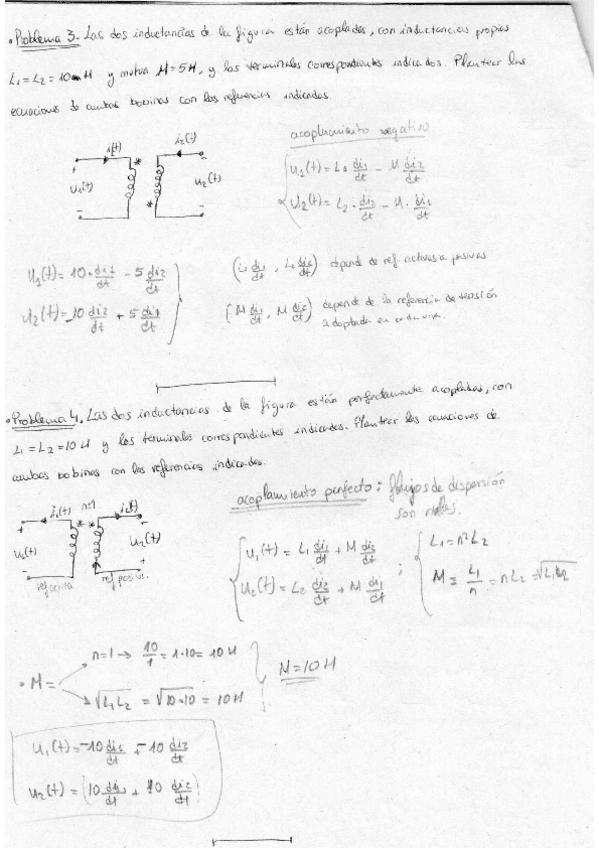 • Problema 3. Las dos inductancias de la figura están acopladas, con inductancias propias
L₁ = L₂ = 10 H y mutua M = 5H, y los terminales correspondientes indicados. Plantear las
ecuaciones de ambas bobinas con las referencias indicadas.
acoplamiento negativo
i₁(t) i₂(t)
+ * -
u₁(t) u₂(t)
- * +
u₁(t) = L₁ di₁/dt - M di₂/dt
u₂(t) = L₂ · di₂/dt - M · di₁/dt
u₁(t) = 10 · di₁/dt - 5 di₂/dt
u₂(t) = -10 di₂/dt + 5 di₁/dt
(L₁ di₁/dt , L₂ di₂/dt) depende de ref. activas o pasivas
(M di₁/dt , M di₂/dt) depende de la referencia de tensión
adoptada en cada una.
• Problema 4. Las dos inductancias de la figura están perfectamente acopladas, con
L₁ = L₂ = 10 H y los terminales correspondientes indicados. Plantear las ecuaciones de
ambas bobinas con las referencias indicadas.
acoplamiento perfecto: flujos de dispersión
son nulos.
i₁(t) n:1 i₂(t)
+ * * -
u₁(t) u₂(t)
- +
ref activa ref pasiva
u₁(t) = L₁ di₁/dt + M di₂/dt
u₂(t) = L₂ di₂/dt + M di₁/dt ;
L₁ = n² L₂
M = L₁/n = nL₂ = √L₁L₂
• M =
n=1 → 10/1 = 1·10 = 10 H
√L₁L₂ = √10·10 = 10H
M = 10 H
u₁(t) = -10 di₁/dt + -10 di₂/dt
u₂(t) = (10 di₁/dt + 10 di₂/dt)